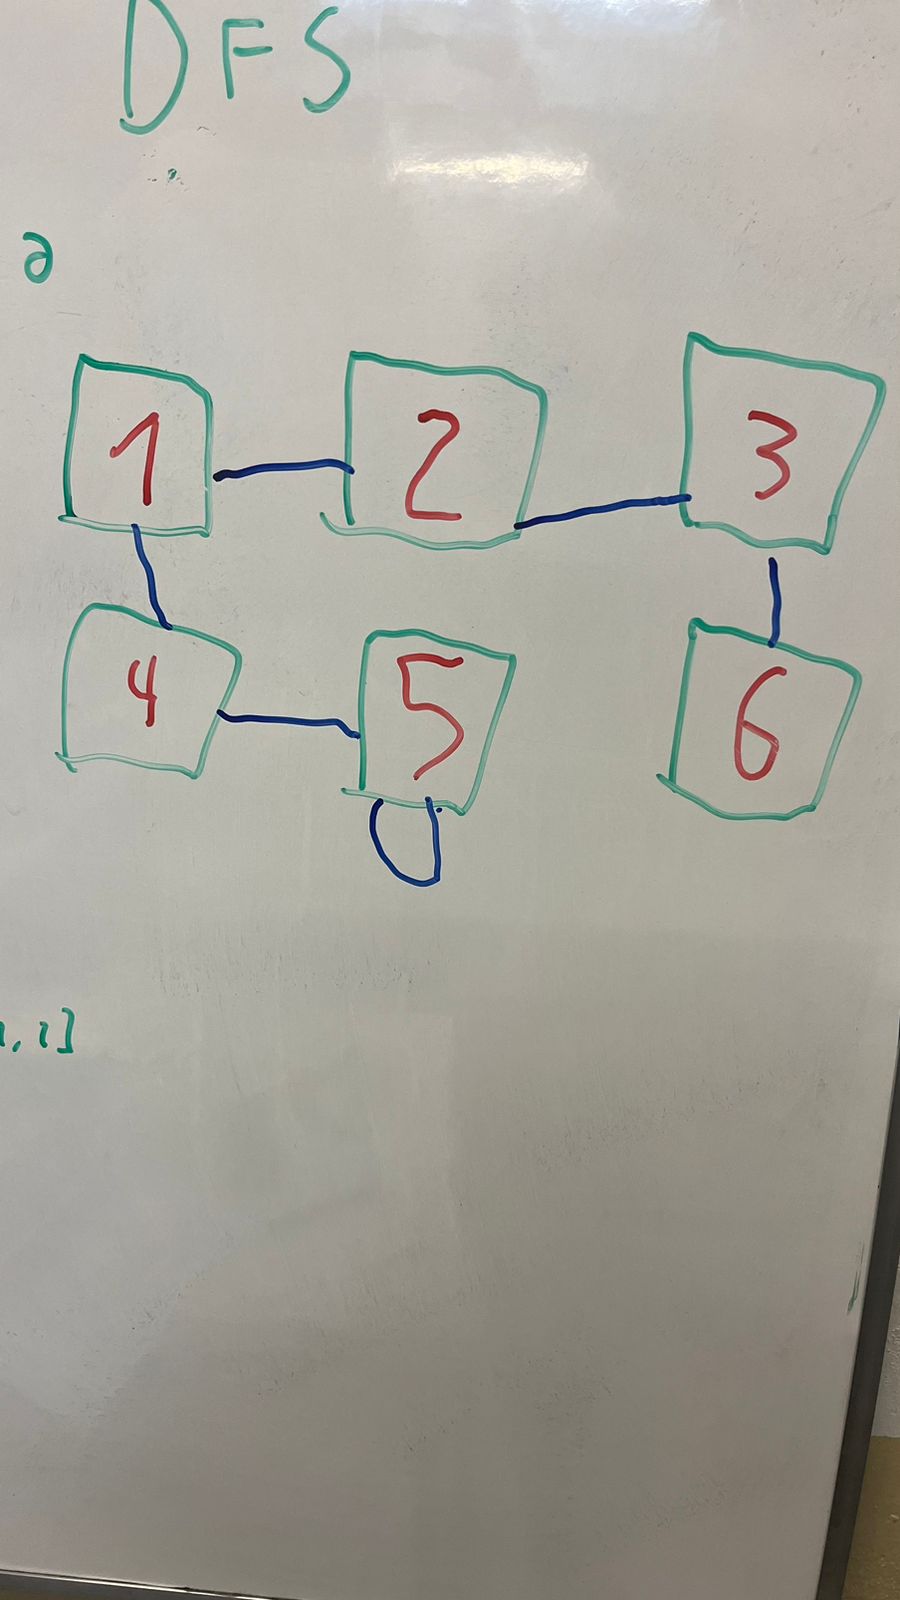 DFS
a
1 2 3
4 5 6
, 1]